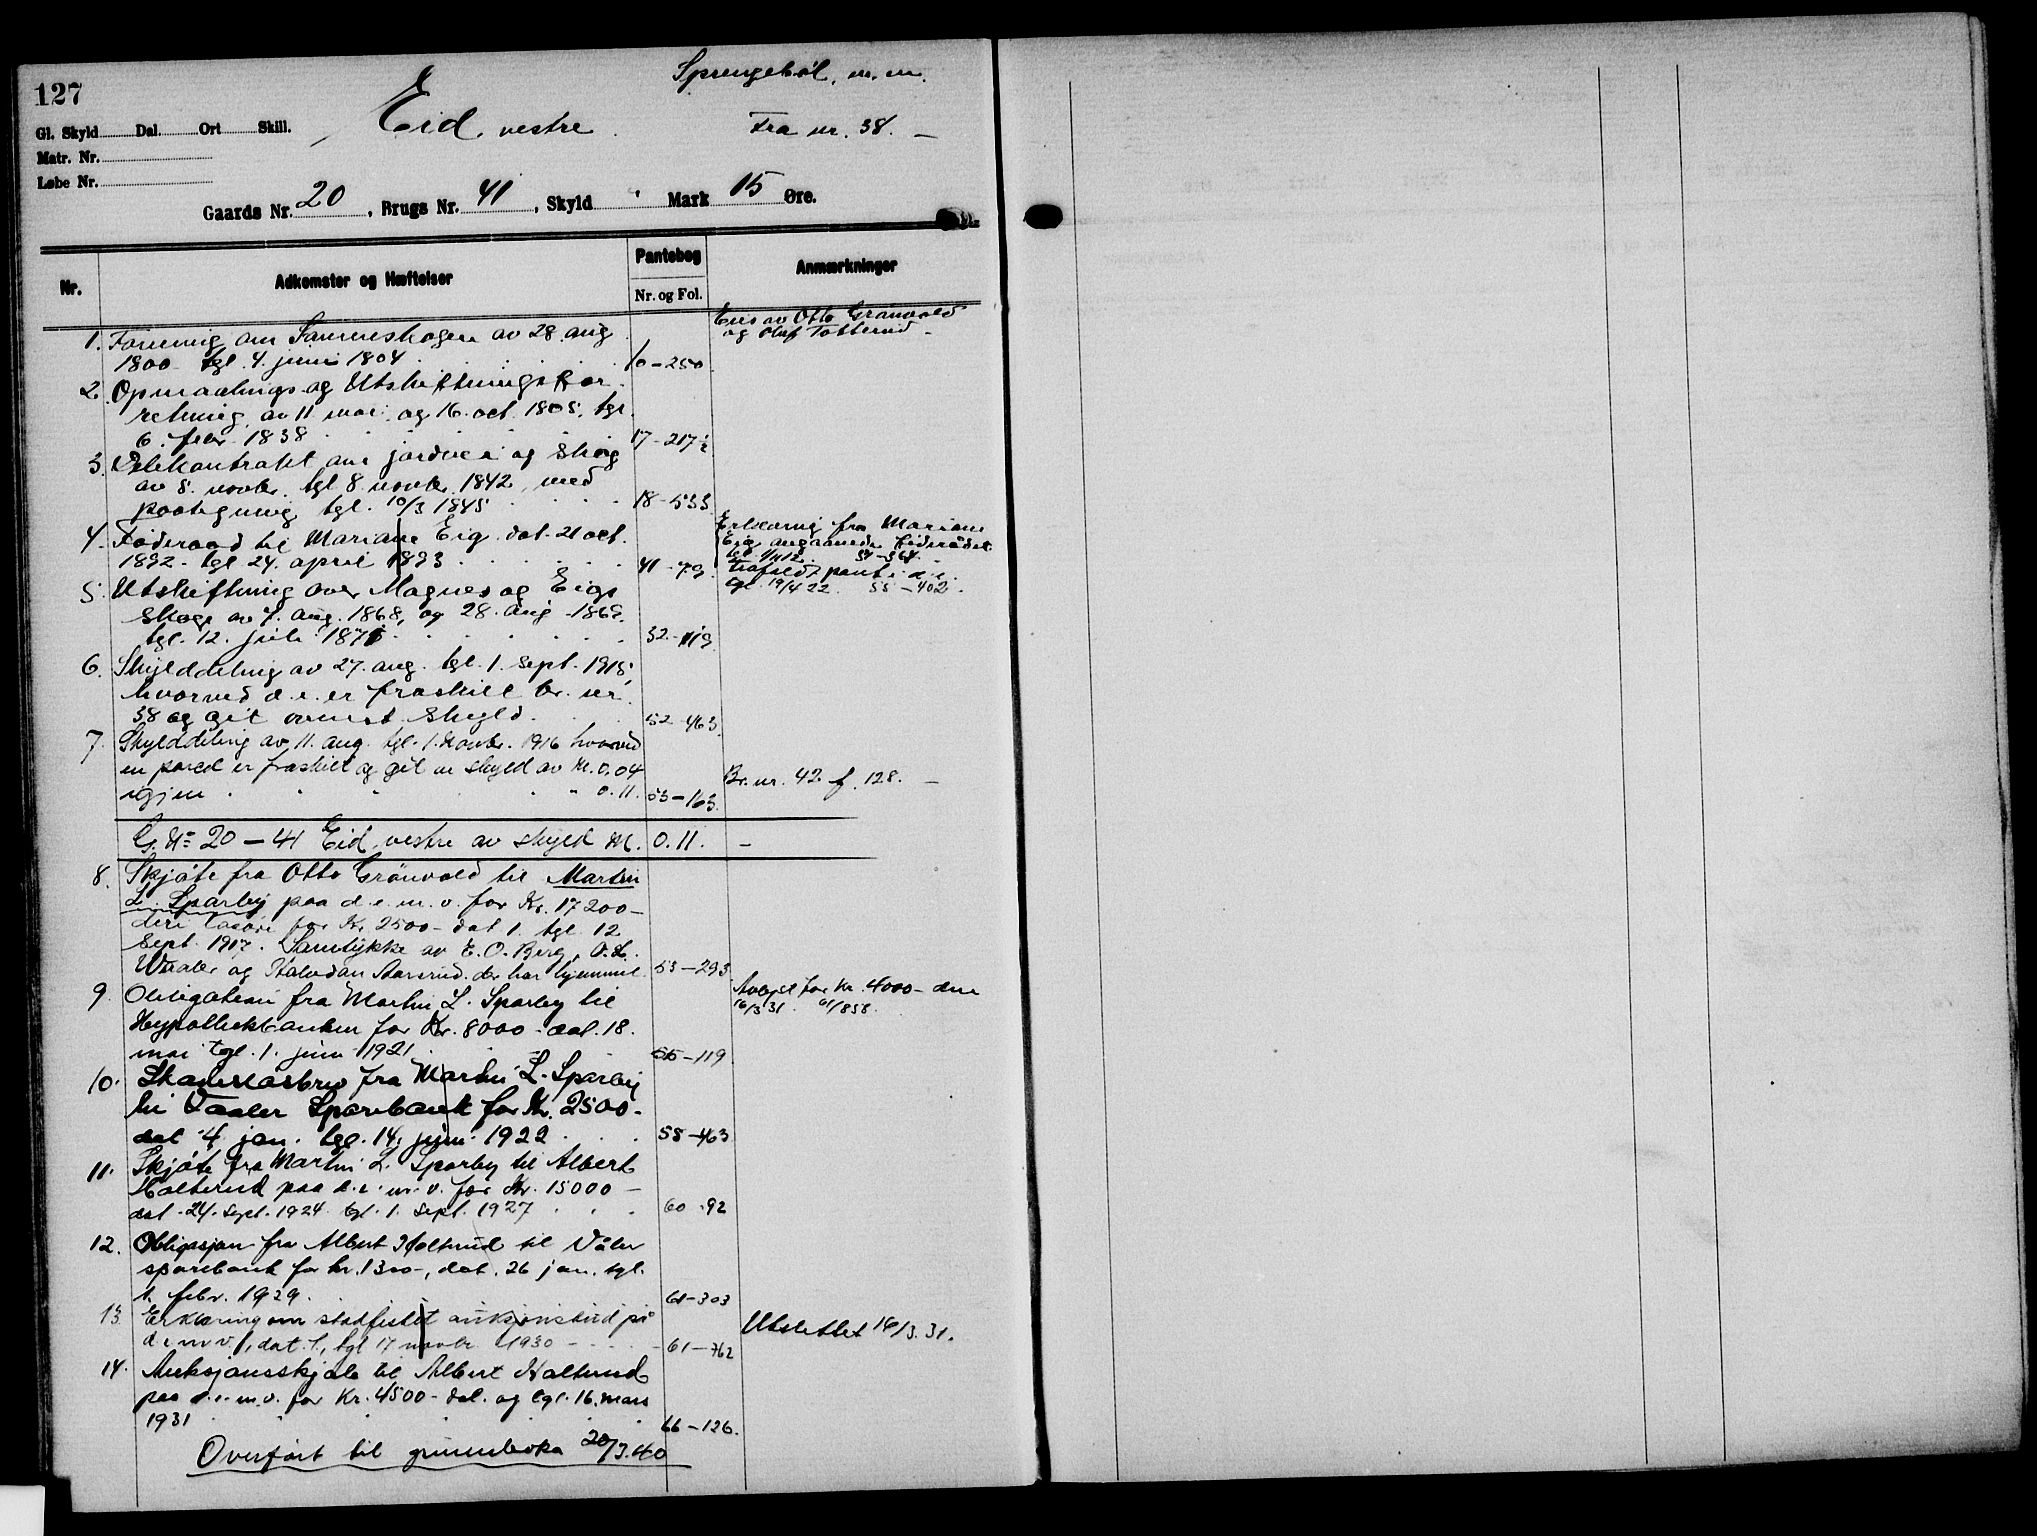 127
Sprengebøl, m.m.
Gl. Skyld Dal. Ort Skill.
Eid, vestre.
Fra nr. 38. –
Matr. Nr.
Løbe Nr.
Gaards Nr. 20, Brugs Nr. 41, Skyld " Mark 15 Øre.
Nr.
Adkomster og Hæftelser
Pantebog
Nr. og Fol.
Anmærkninger
Eies av Otto Grønvold
og Oluf Totterud –
1. Forening om av 28. aug.
1800 tgl. 4. juni 1804 10–250
2. Opmaalings og Utskiftningsfor-
retning av 11. mai og 16. oct. 1805, tgl.
6. febr. 1838 17–217½
3. Delekontrakt om jordvei og skog
av 5. novbr. tgl. 8. novbr. 1842, med
paategning tgl. 10/3 1845 18–533
4. Føderaad til Mariane Eig dat. 21 oct.
1892 – tgl 24. april 1893 41–79
Erklæring fra Mariane
Eig angaaende føderådet
tgl. 54–364.
Frafaldt pant i d.e.
tgl. 19/4 22. 55–402.
5. Utskiftning over Magnes og Eigs
skoge av 7. aug. 1868, og 28. aug. 1869.
tgl. 12. juli 1871 32–119
6. Skylddeling av 27. aug. tgl. 1. sept. 1915,
hvorved d.e. er fraskilt br. nr.
38 og git ovennt. skyld. 52–463
7. Skylddeling av 11. aug. tgl. 1. novbr. 1916 hvorved
en parcel er fraskilt og git en skyld av M. 0.04
igjen " " " 0.11. 53–163
Br. nr. 42 f. 128. –
G. Nº 20 – 41 Eid vestre av skyld M. 0.11. –
8. Skjøte fra Otto Grönvold til Martin
L. Sparby paa d.e. m.v. for Kr. 17200–
deri løsøre for Kr. 2500– dat 1. tgl. 12
Sept. 1917. Samtykke av E. O. Berg, O. L.
Waaler og Halvdan Aarsrud. der har hjemmel 53–293
9. Obligation fra Martin L. Sparby til
Hypothekbanken for Kr. 8000– dat. 18.
mai tgl. 1. juni 1921 55–119
Avløst for kr. 4000– den
16/3 31. 61/858.
10. Skadesløsbrev fra Martin L. Sparby
til Vaaler Sparebank for Kr. 2500–
dat 4. jan. tgl. 14. juni 1922 58–463
11. Skjøte fra Martin L. Sparby til Albert
Holterud paa d.e. m.v. for Kr. 15000–
dat. 24. sept. 1924 tgl. 1. sept. 1927 60–92
12. Obligasjon fra Albert Holterud til Våler
sparebank for kr. 1300–, dat. 26 jan. tgl.
1. febr. 1929. 61–303
13. Erklæring om stadfestet auksjonsbud på
d.e. m.v., dat. 1., tgl 17 novbr 1930 – 61–762
Utslettet 16/3.31.
14. Auksjonsskjøte til Albert Holterud
paa d.e. m.v. for Kr. 4500– dat. og tgl. 16. mars
1931 66–126.
Overført til grunnboka 20/3.40